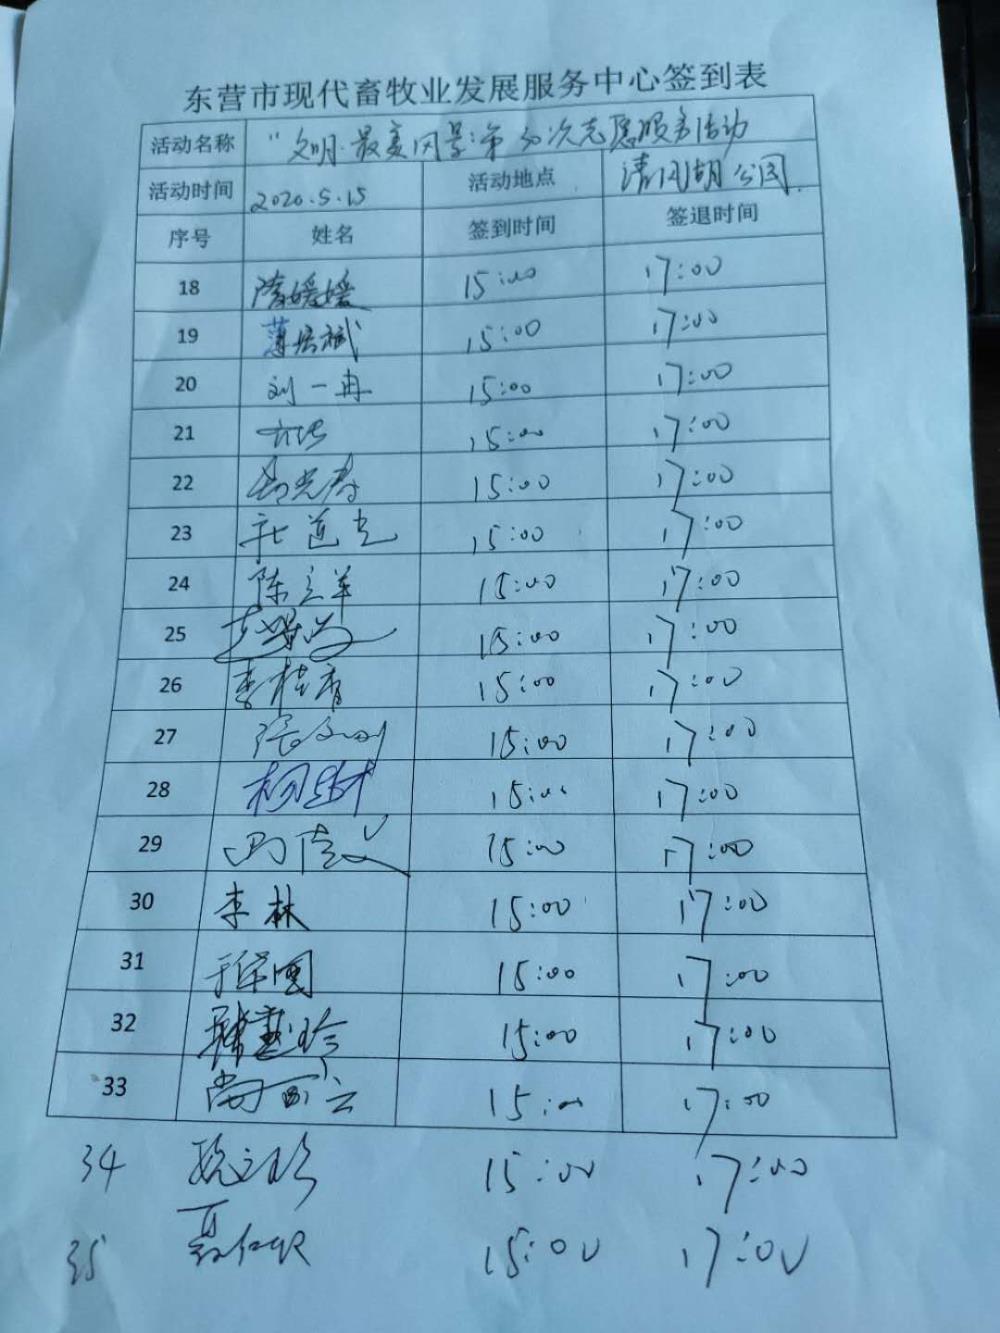 东营市现代畜牧业发展服务中心签到表
活动名称 "文明·最美风景"第 次志愿服务活动
活动时间 2020.5.15 活动地点 清风湖公园
序号 姓名 签到时间 签退时间
18 媛媛 15:00 17:00
19 薄 斌 15:00 17:00
20 刘一冉 15:00 17:00
21 15:00 17:00
22 15:00 17:00
23 道 15:00 17:00
24 陈立军 15:00 17:00
25 15:00 17:00
26 李桂香 15:00 17:00
27 张 刚 15:00 17:00
28 15:00 17:00
29 15:00 17:00
30 李林 15:00 17:00
31 于 国 15:00 17:00
32 韩 玲 15:00 17:00
33 尚 云 15:00 17:00
34 15:00 17:00
35 15:00 17:00